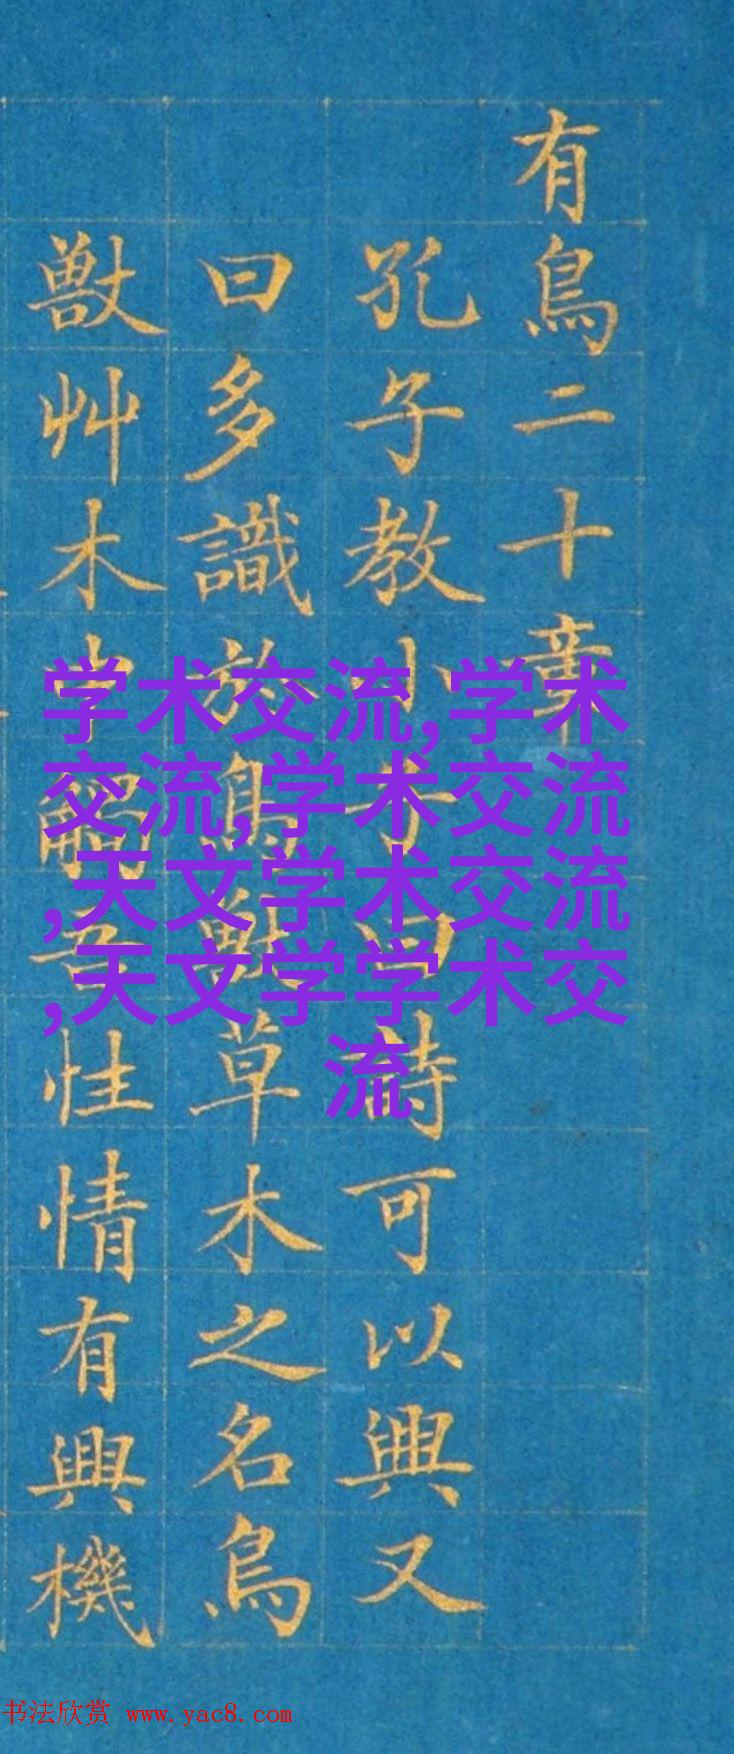 有鳥二十章
孔子教小子曰詩可以興又
曰多識於鳥獸草木之名鳥
獸艸木性情有興機
学术交流,学术
交流,学术交流
,天文学术交流
,天文学学术交
流
书法欣赏 www.yac8.com